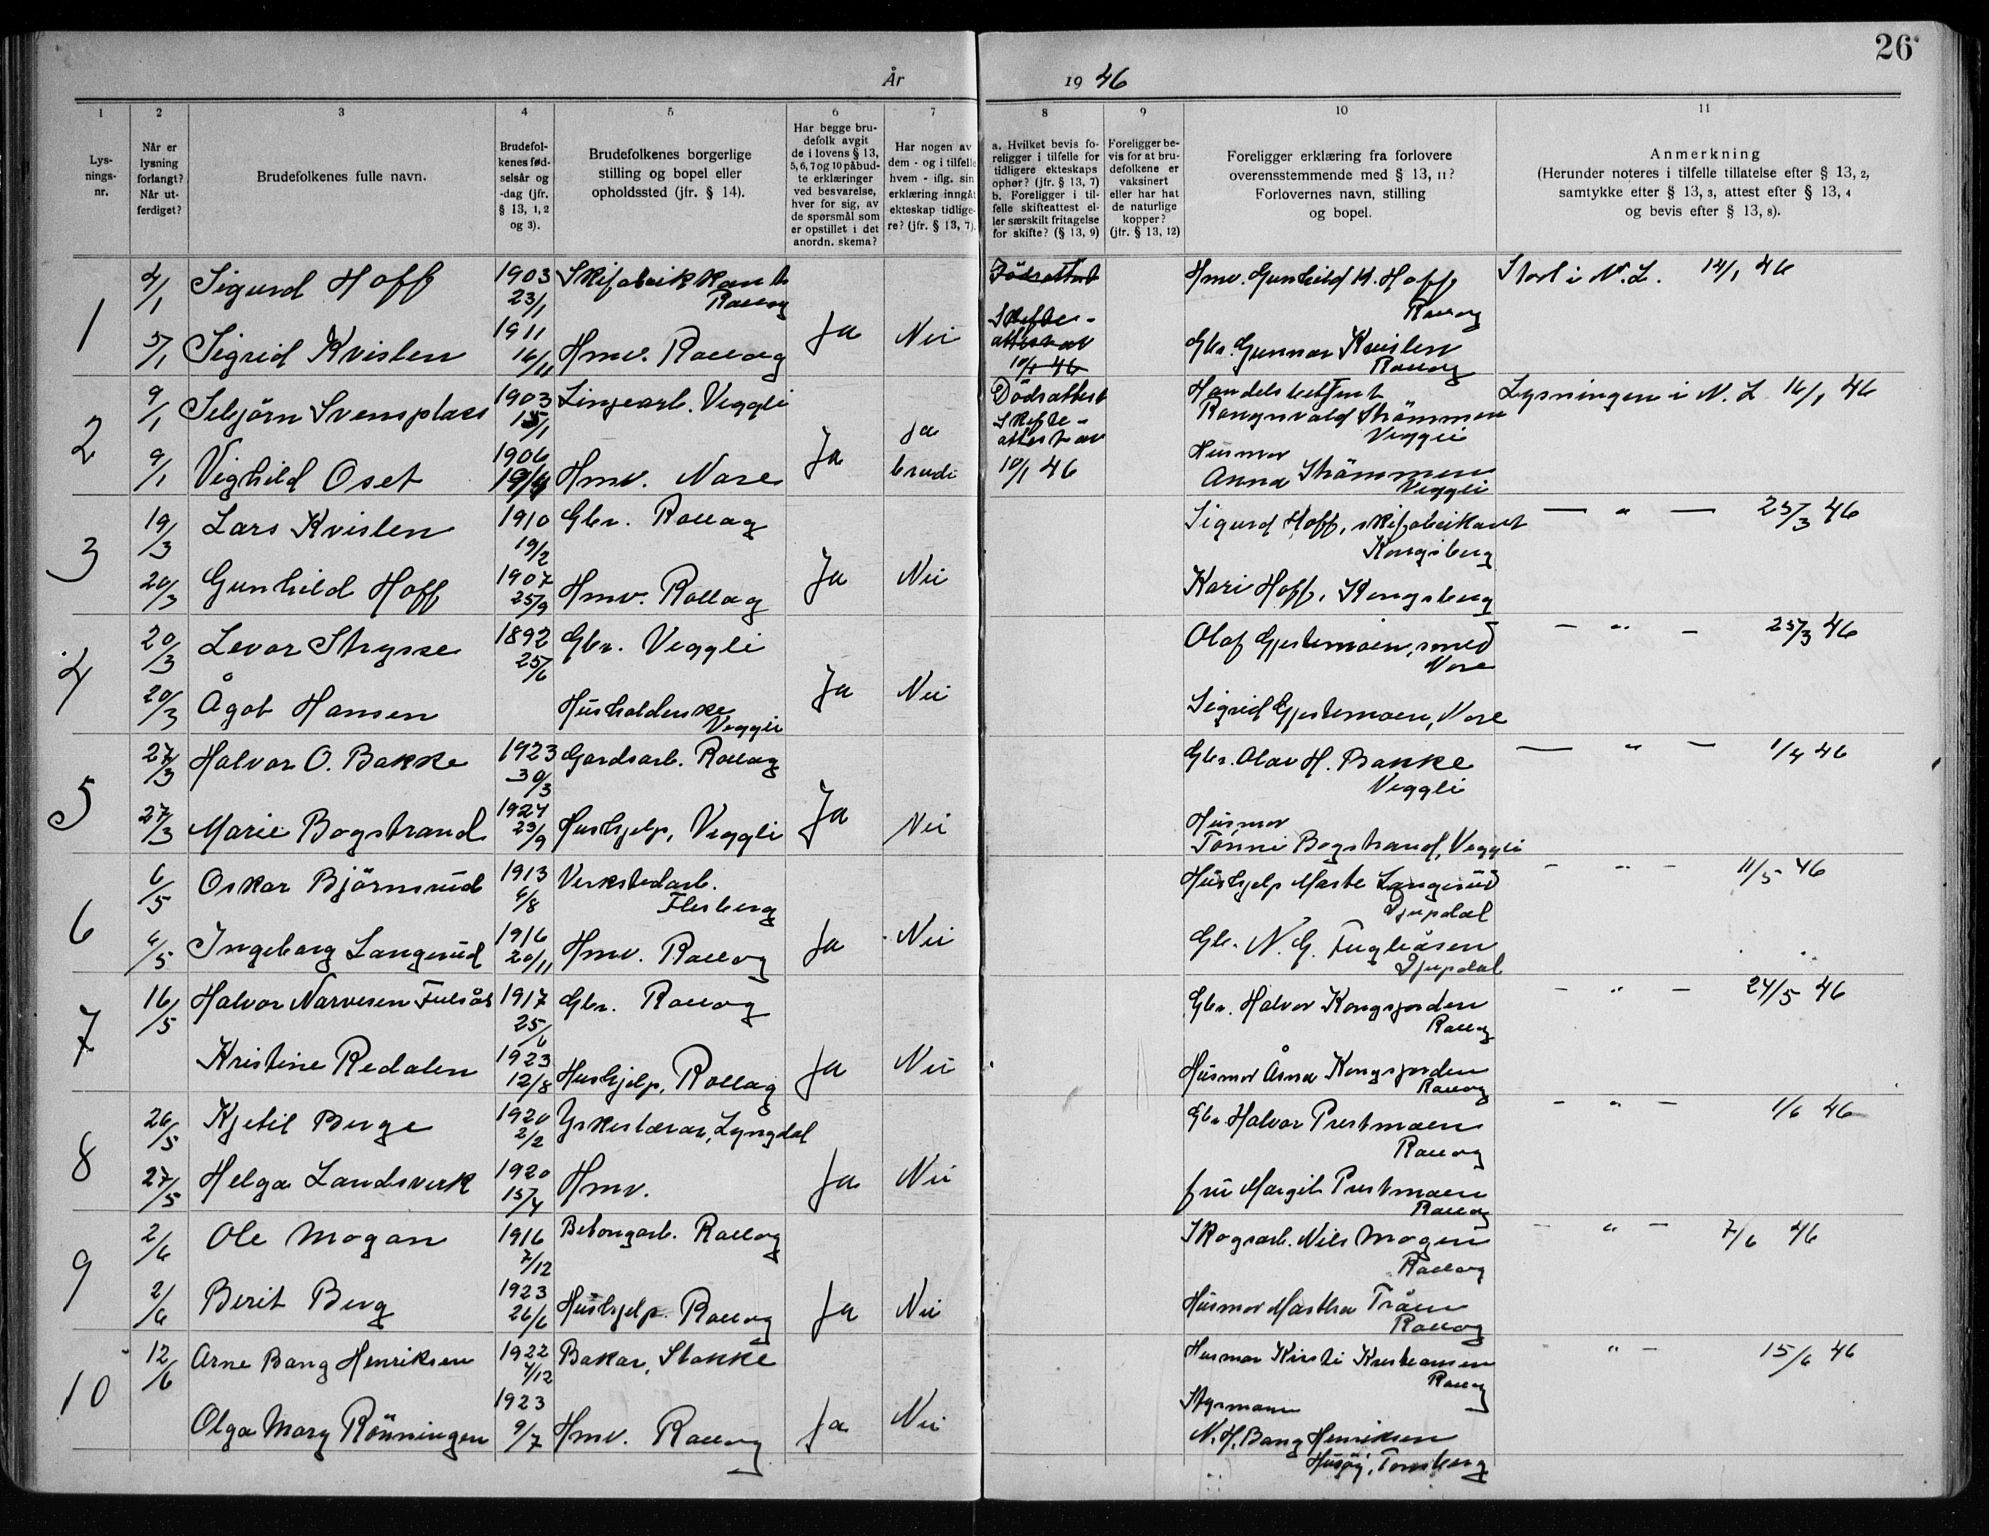 26
År 1946
1
2
3
4
5
6
7
8
9
10
11
Lys-
nings-
nr.
Når er
lysning
forlangt?
Når ut-
ferdiget?
Brudefolkenes fulle navn.
Brudefol-
kenes fød-
selsår og
-dag (jfr.
§ 13, 1, 2
og 3).
Brudefolkenes borgerlige
stilling og bopel eller
opholdssted (jfr. § 14).
Har begge bru-
defolk avgit
de i lovens § 13,
5, 6, 7 og 10 påbud-
te erklæringer
ved besvarelse,
hver for sig, av
de spørsmål som
er opstillet i det
anordn. skema?
Har nogen av
dem - og i tilfelle
hvem - iflg. sin
erklæring inngåt
ekteskap tidlige-
re? (jfr. § 13, 7).
a. Hvilket bevis fo-
religger i tilfelle for
tidligere ekteskaps
ophør? (jfr. § 13, 7)
b. Foreligger i til-
felle skifteattest el-
ler særskilt fritagelse
for skifte? (§ 13, 9)
Foreligger be-
vis for at bru-
defolkene er
vaksinert
eller har hat
de naturlige
kopper?
(jfr. § 13, 12)
Foreligger erklæring fra forlovere
overensstemmende med § 13, 11?
Forlovernes navn, stilling
og bopel.
Anmerkning
(Herunder noteres i tilfelle tillatelse efter § 13, 2,
samtykke efter § 13, 3, attest efter § 13, 4
og bevis efter § 13, 8).
1
4/1 Sigurd Hoff 1903 23/1 Skifabrikkant Rollag
Dødsattest
Skifte-
attest av
10/1 46
Hmv. Gunhild H. Hoff
Rollag
i N. L. 14/1 46
5/1 Sigrid Kvislen 1911 16/11 Hmv. Rollag Ja Nei
Gbr. Gunnar Kvislen
Rollag
2
9/1 Sebjörn Svensplass 1903 15/1 Linjearb. Veggli
Dødsattest
Skifte-
attest av
10/1 46
Handelsbetjent
Rangnvald Strömmen
Veggli
Lysningen i N. L 16/1 46
9/1 Vighild Oset 1906 19/4 Hmv. Nore Ja ja
Husmor
Anna Strömmen
Veggli
3
19/3 Lars Kvislen 1910 19/2 Gbr. Rollag
Sigurd Hoff, skifabrikant
Kongsberg
— " — 25/3 46
20/3 Gunhild Hoff 1907 25/9 Hmv. Rollag Ja Nei
Kari Hoff, Kongsberg
4
20/3 Levor Strysse 1892 25/6 Gbr. Veggli
Olaf Gjestemoen, smed
Nore
— " — 25/3 46
20/3 Ågot Hansen Husholderske Veggli Ja Nei
Sigrid Gjestemoen, Nore
5
27/3 Halvor O. Bakke 1923 30/3 Gardsarb. Rollag
Gbr. Olav H. Bakke
Veggli
— " — 1/4 46
27/3 Marie Bogstrand 1924 23/9 Hushjelp, Veggli Ja Nei
Husmor
Tonni Bogstrand, Veggli
6
6/5 Oskar Björnsrud 1913 6/8 Verkstedarb. Flesberg
Hushjelp Marte Langerud
Djupdal
— " — 11/5 46
6/5 Ingeborg Langerud 1916 20/11 Hmv. Rollag Ja Nei
Gbr. N. G. Fugleåsen
Djupdal
7
16/5 Halvor Narvesen Fulsås 1917 25/6 Gbr. Rollag
Gbr. Halvor Kongsjorden
Rollag
— " — 24/5 46
Kristine Redalen 1923 12/8 Hushjelp, Rollag Ja Nei
Husmor Åsna Kongsjorden
Rollag
8
26/5 Kjetil Berge 1920 2/2 Yrkeslærar, Lyngdal
Gbr Halvor Prestmoen
Rollag
— " — 1/6 46
27/5 Helga Landsverk 1920 15/4 Hmv. Ja Nei
fru Margit Prestmoen
Rollag
9
2/6 Ole Mogan 1916 7/12 Betongarb. Rollag
Skogsarb. Nils Mogen
Rollag
— " — 7/6 46
2/6 Berit Berg 1923 26/6 Hushjelp. Rollag Ja Nei
Husmor Martha Tråen
Rollag
10
12/6 Arne Bang Henriksen 1922 4/12 Bakar, Stokke
Husmor Kirsti Kristiansen
Rollag
" — 15/6 46
Olga Mary Rönningen 1923 9/7 Hmv. Rollag Ja Nei
Styrmann
N. H. Bang Henriksen
Husøy, Tønsberg